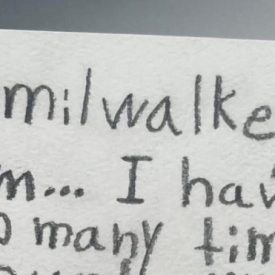 milwalke
m... I hav
o many tim